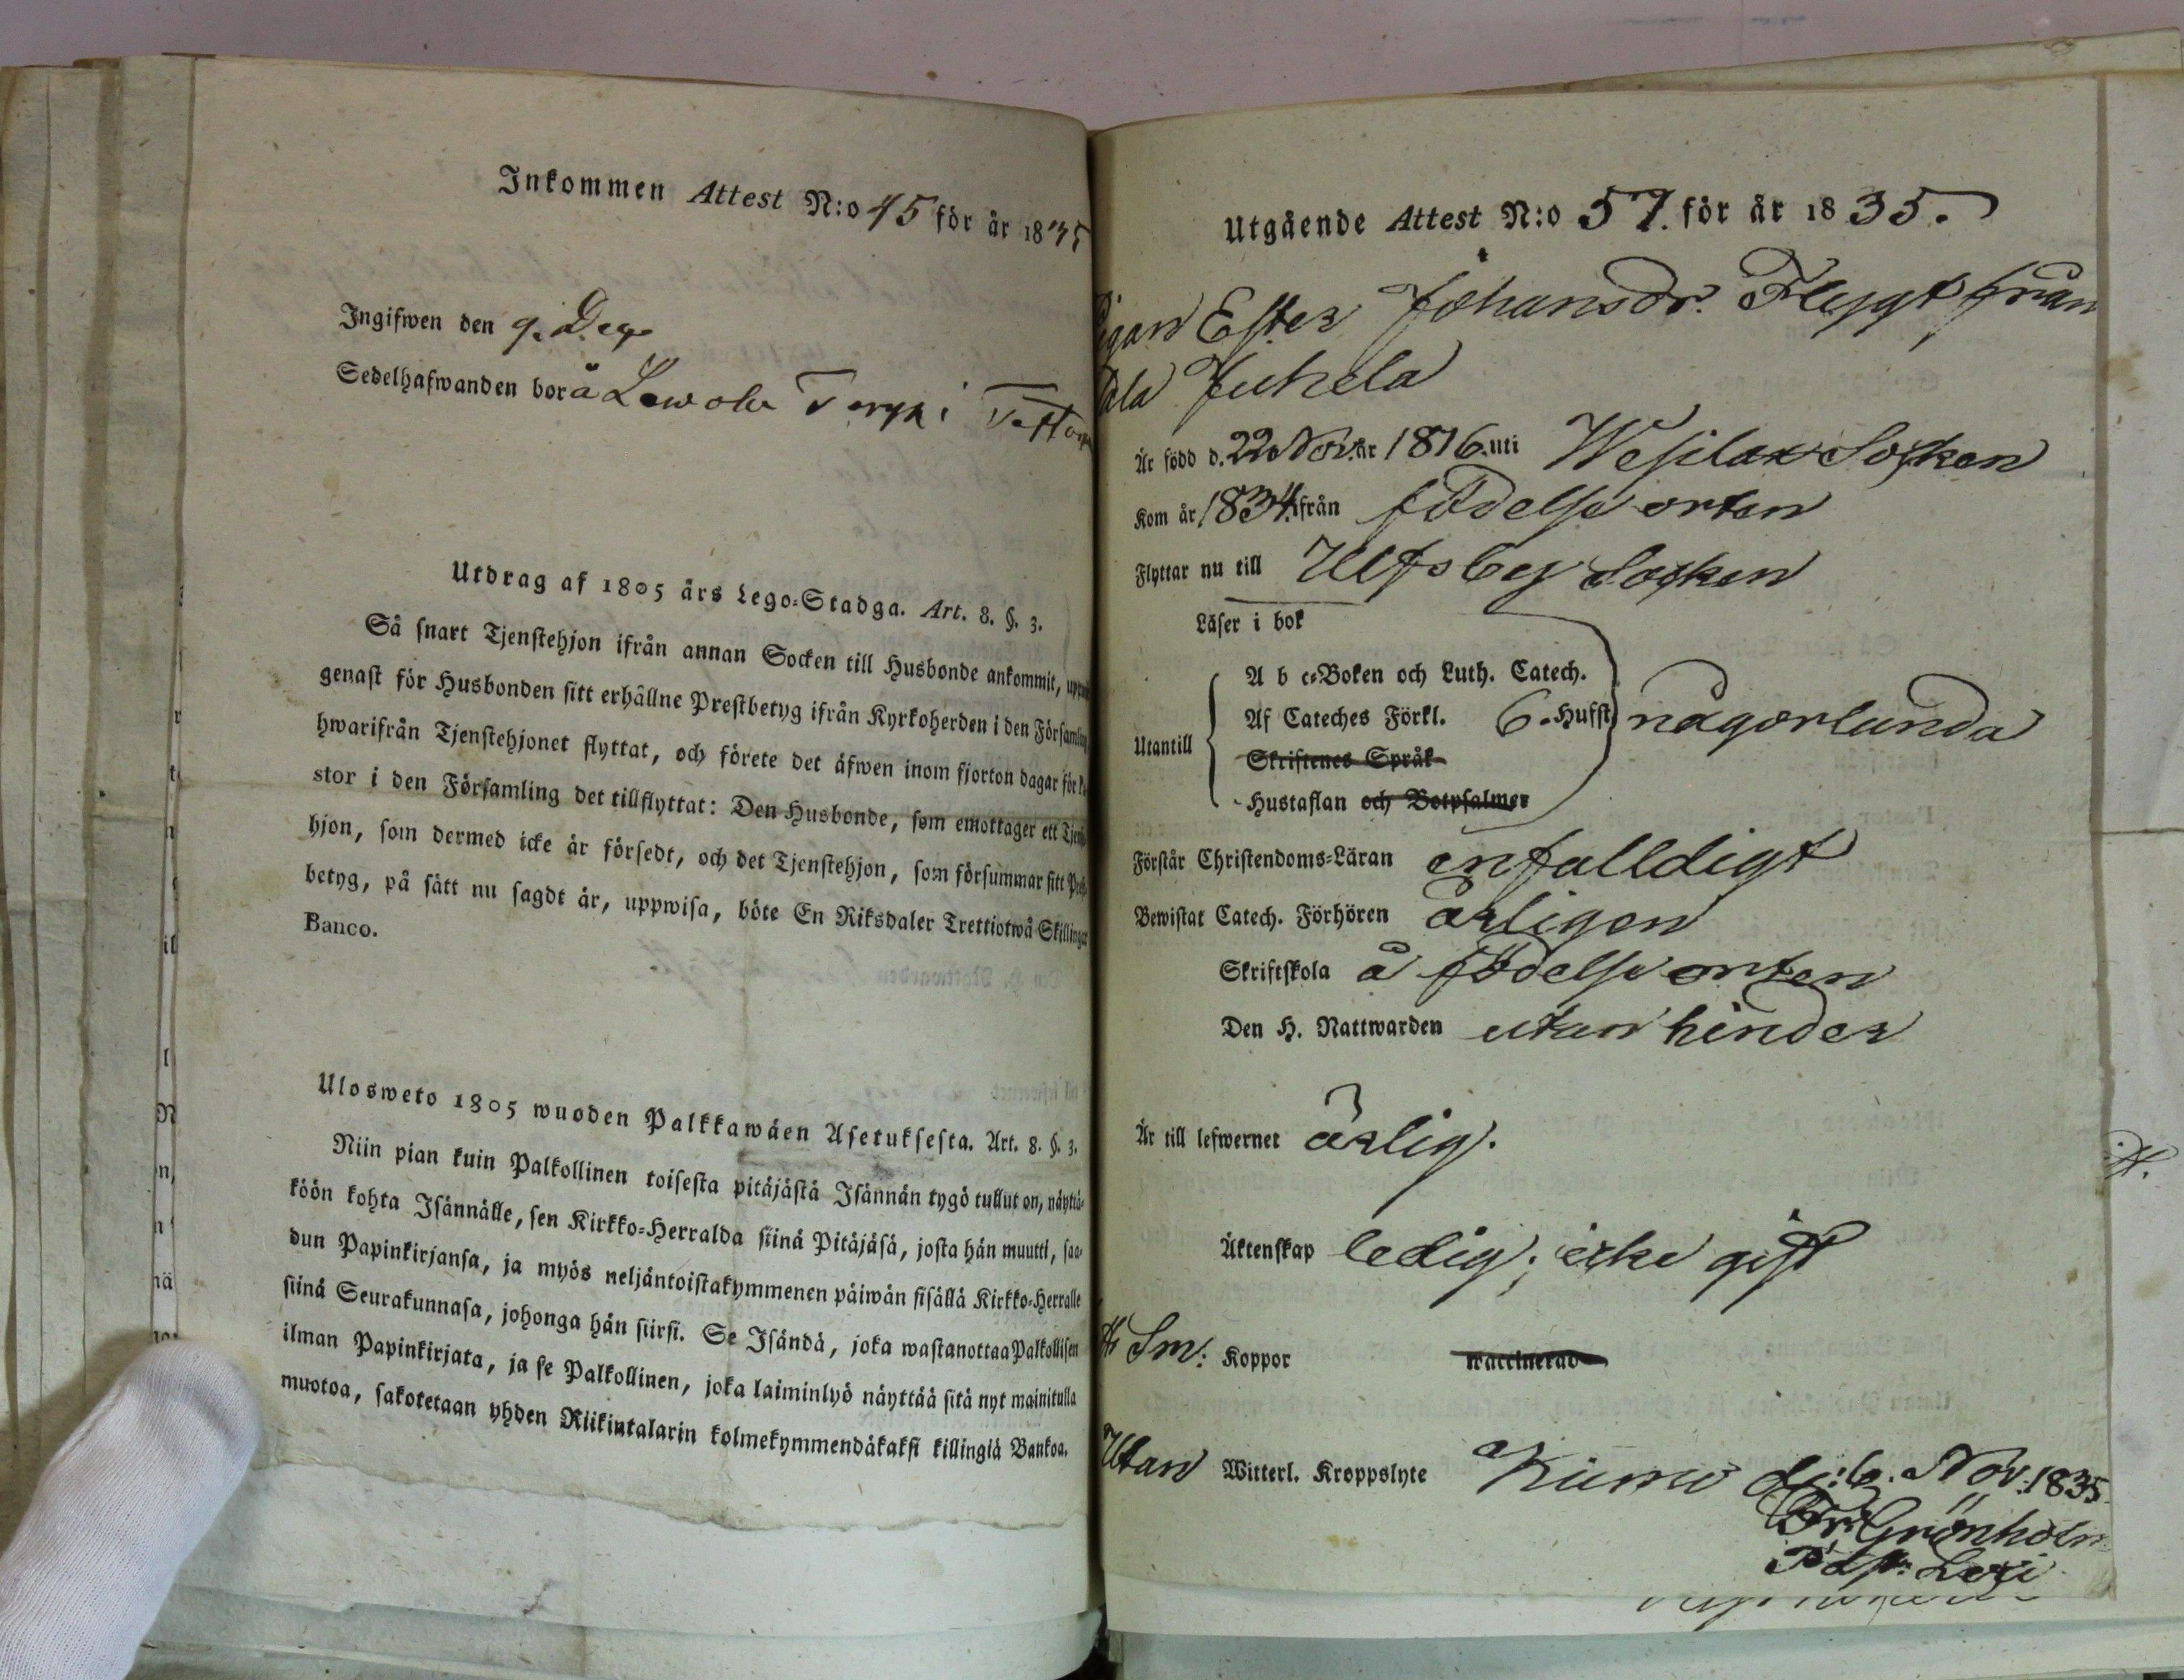 Inkommen Attest N:o 45 för år 1835
Ingifwen den 9. Dec.
Sedelhafwanden bor å Lewola Torp i
Utdrag af 1805 års Lego-Stadga. Art. 8. §. 3.
Så snart Tjenstehjon ifrån annan Socken till Husbonde ankommit,
genast för Husbonden sitt erhållne Prestbetyg ifrån Kyrkoherden i den Församling
hwarifrån Tjenstehjonet flyttat, och förete det äfwen inom fjorton dagar för
stor i den Församling det tillflyttat: Den Husbonde, som emottager ett
hjon, som dermed icke är försedt, och det Tjenstehjon, som försummar sitt
betyg, på sätt nu sagdt är, uppwisa, böte En Riksdaler Trettiotwå Skillingar
Banco.
Ulosweto 1805 wuoden Palkkawäen Asetuksesta. Art. 8. §. 3.
Niin pian kuin Palkollinen toisesta pitäjästä Isännän tygö tullut on, näyttä-
köön kohta Isännälle, sen Kirkko-Herralda siinä Pitäjäsä, josta hän muutti, saa-
dun Papinkirjansa, ja myös neljäntoistakymmenen päiwän sisällä Kirkko-Herralle
siinä Seurakunnasa, johonga hän siirsi. Se Isändä, joka wastanottaa Palkollisen
ilman Papinkirjata, ja se Palkollinen, joka laiminlyö näyttää sitä nyt mainitulla
muotoa, sakotetaan yhden Riikintalarin kolmekymmendäkaksi killingiä Bankoa.
Utgående Attest N:o 57. för år 1835.
Pigan Ester Johansdr. Flygt från
Juhela
Är född d. 22 Nov. år 1816. uti Wesilax Socken
Kom år 1834. ifrån födelse orten
Flyttar nu till Ulfsby Socken
Läser i bok
Utantill
A b c-Boken och Luth. Catech.
Af Cateches Förkl. 6. Hufst. någorlunda
Skriftenes Språk
Hustaflan och Botpsalmer
Förstår Christendoms-Läran enfalldigt
Bewistat Catech. Förhören årligen
Skriftskola å födelse orten
Den H. Nattwarden utan hinder
Är till lefwernet ärlig.
Äktenskap ledig; icke gift
Sm: Koppor waccinerad
Utan Witterl. Kroppslyte Kiumo d: 6. Nov. 1835
Fr. Grönholm